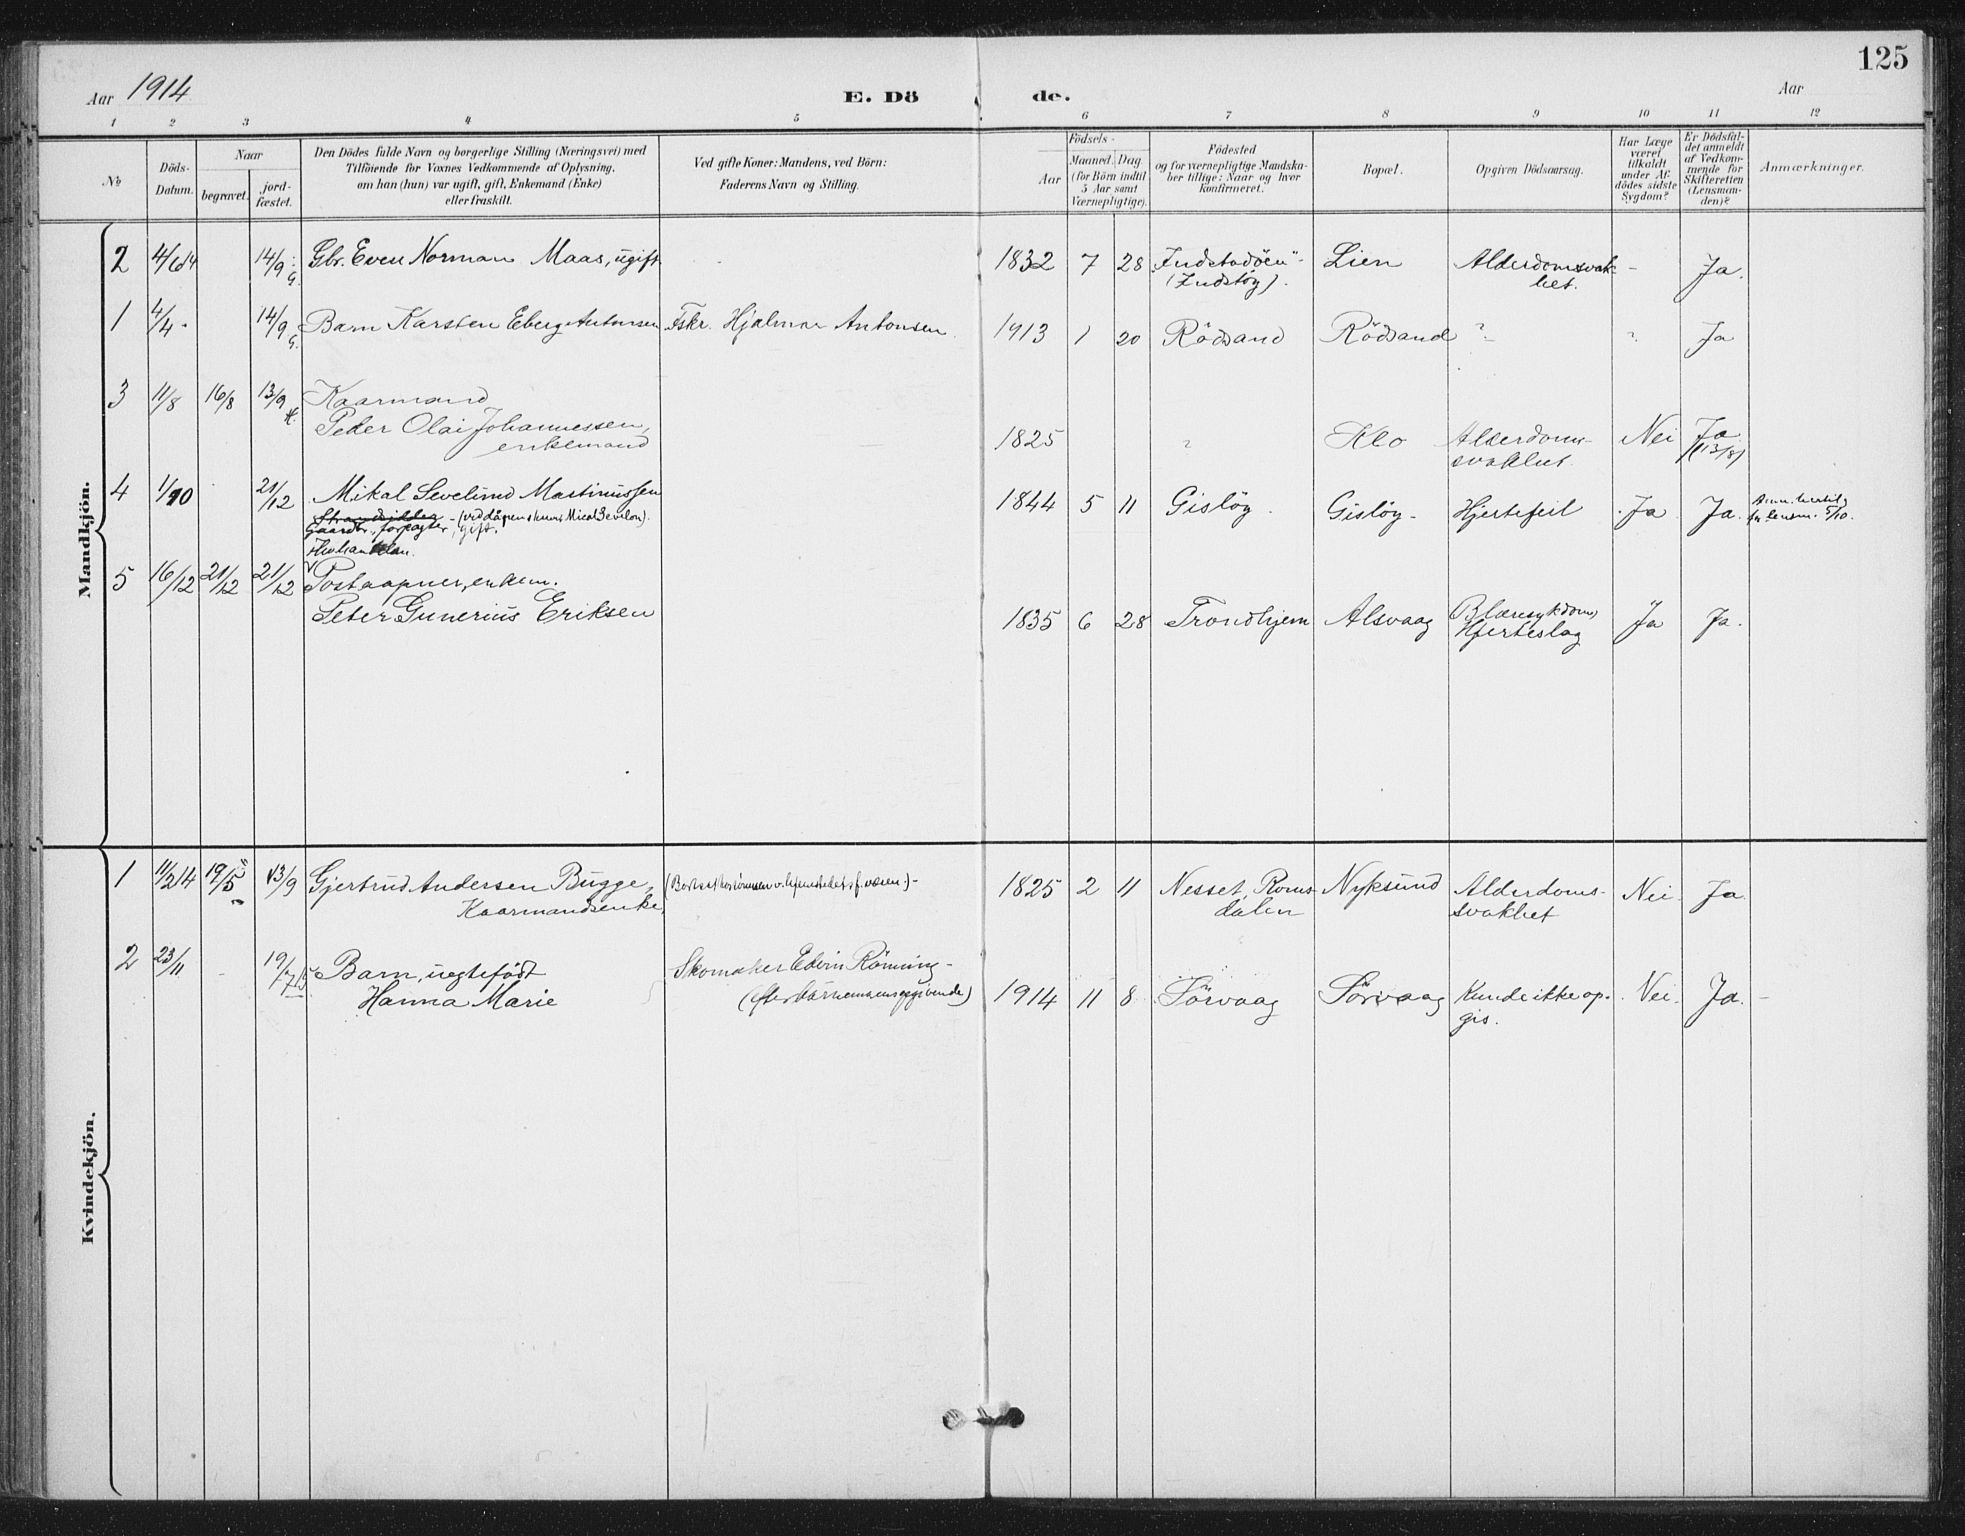 125
Aar 1914
E. Dö de.
Aar
1 2 3 4 5 6 7 8 9 10 11 12
No
Döds-Datum.
Naar
begravet.
jord-fæstet.
Den Dödes fulde Navn og borgerlige Stilling (Næringsvei) med
Tilföiende for Voxnes Vedkommende af Oplysning,
om han (hun) var ugift, gift, Enkemand (Enke)
eller fraskilt.
Ved gifte Koner: Mandens, ved Börn:
Faderens Navn og Stilling.
Födsels-
Aar
Maaned. Dag
(for Börn indtil
5 Aar samt
Værnepligtige).
Födested
og for værnepligtige Mandska-
ber tillige: Naar og hvor
konfirmeret.
Bopæl.
Opgiven Dödsaarsag.
Har Læge
været
tilkaldt
under Af-
dödes sidste
Sygdom?
Er Dödsfal-
det anmeldt
af Vedkom-
mende for
Skifteretten
(Lensman-
den)?
Anmærkninger.
Mandkjön.
2 14/9 G. Gbr. Even Norman Maas, ugift 1832 7 28 "Indstadöen" Lien Alderdomsvak- - Ja.
(Indstöy). het.
1 4/4 14/9 G. Barn Karsten Eberg Antonsen Fskr. Hjalmar Antonsen 1913 1 20 Rödsand Rödsand ? Ja
3 11/8 16/8 13/9 Kaarmand
Peder Olai Johannessen, 1825 Klo Alderdoms- Nei Ja
enkemand svakhet. (13/8)
4 1/10 21/12 Mikal Sevelind Mastinussen 1844 5 11 Gislöy. Gislöy. Hjertefeil Ja Ja.
Gaardbr., forpagter, gift.
5 16/12 21/12 21/12 Postaapner, enkem.
Peter Gunerius Eriksen 1835 6 28 Trondhjem Alsvaag Blæresykdom, Ja Ja.
Hjerteslag
Kvindekjön.
1 11/2 14 19/5 13/9 Gjertrud Andersen Bugge, 1825 2 11 Nesset, Roms- Nyksund Alderdoms- Nei Ja
Kaarmandsenke, dalen svakhet
2 23/11 - 19/7 15 Barn, uegtefödt Skomaker Edvin Rönning -
Hanna Marie (efter barnemorens opgivende) 1914 11 8 Sörvaag Sörvaag Kunde ikke op- Nei. Ja. -
gis.